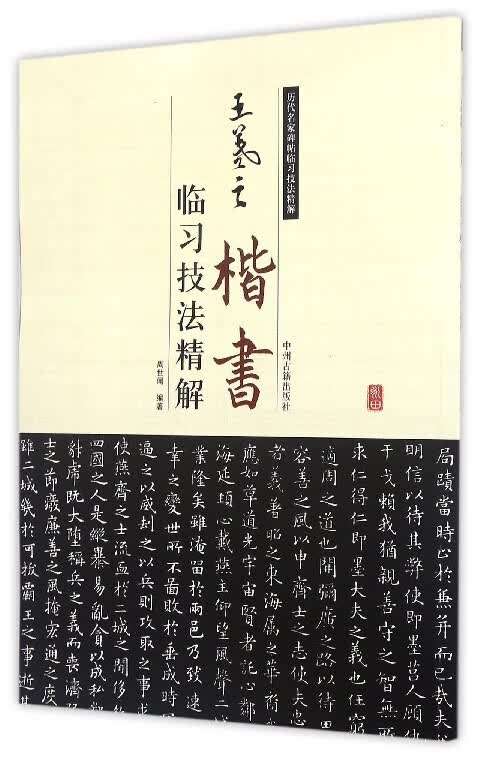 历代名家碑帖临习技法精解
王羲之
楷書
临习技法精解
周世闻 编著
中州古籍出版社
局蹟當時止於兼并而已哉夫
明信以待其弊使即墨莒人顧
干戈賴我猶親善守之智無所
求仁得仁即墨大夫之義也任窮
適周之道也開彌廣之路以待田
容善之風以申齊士之志使夫忠
者義著昭之東海属之華裔
應如草道光宇宙賢者託心鄰
海延頸心戴燕主仰望風聲二
業隆矣雖淹留於兩邑乃致速
幸之變世所不圖敗於垂成時
逼之以威劫之以兵則攻取之事求
使燕齊之士流血於二城之間侈
四國之人是縱暴易亂貪以成私鄰
既大堕稱兵之義而喪濟
士之節廢廉善之風掩宏通之度
雖二城幾於可拔霸王之事逝其